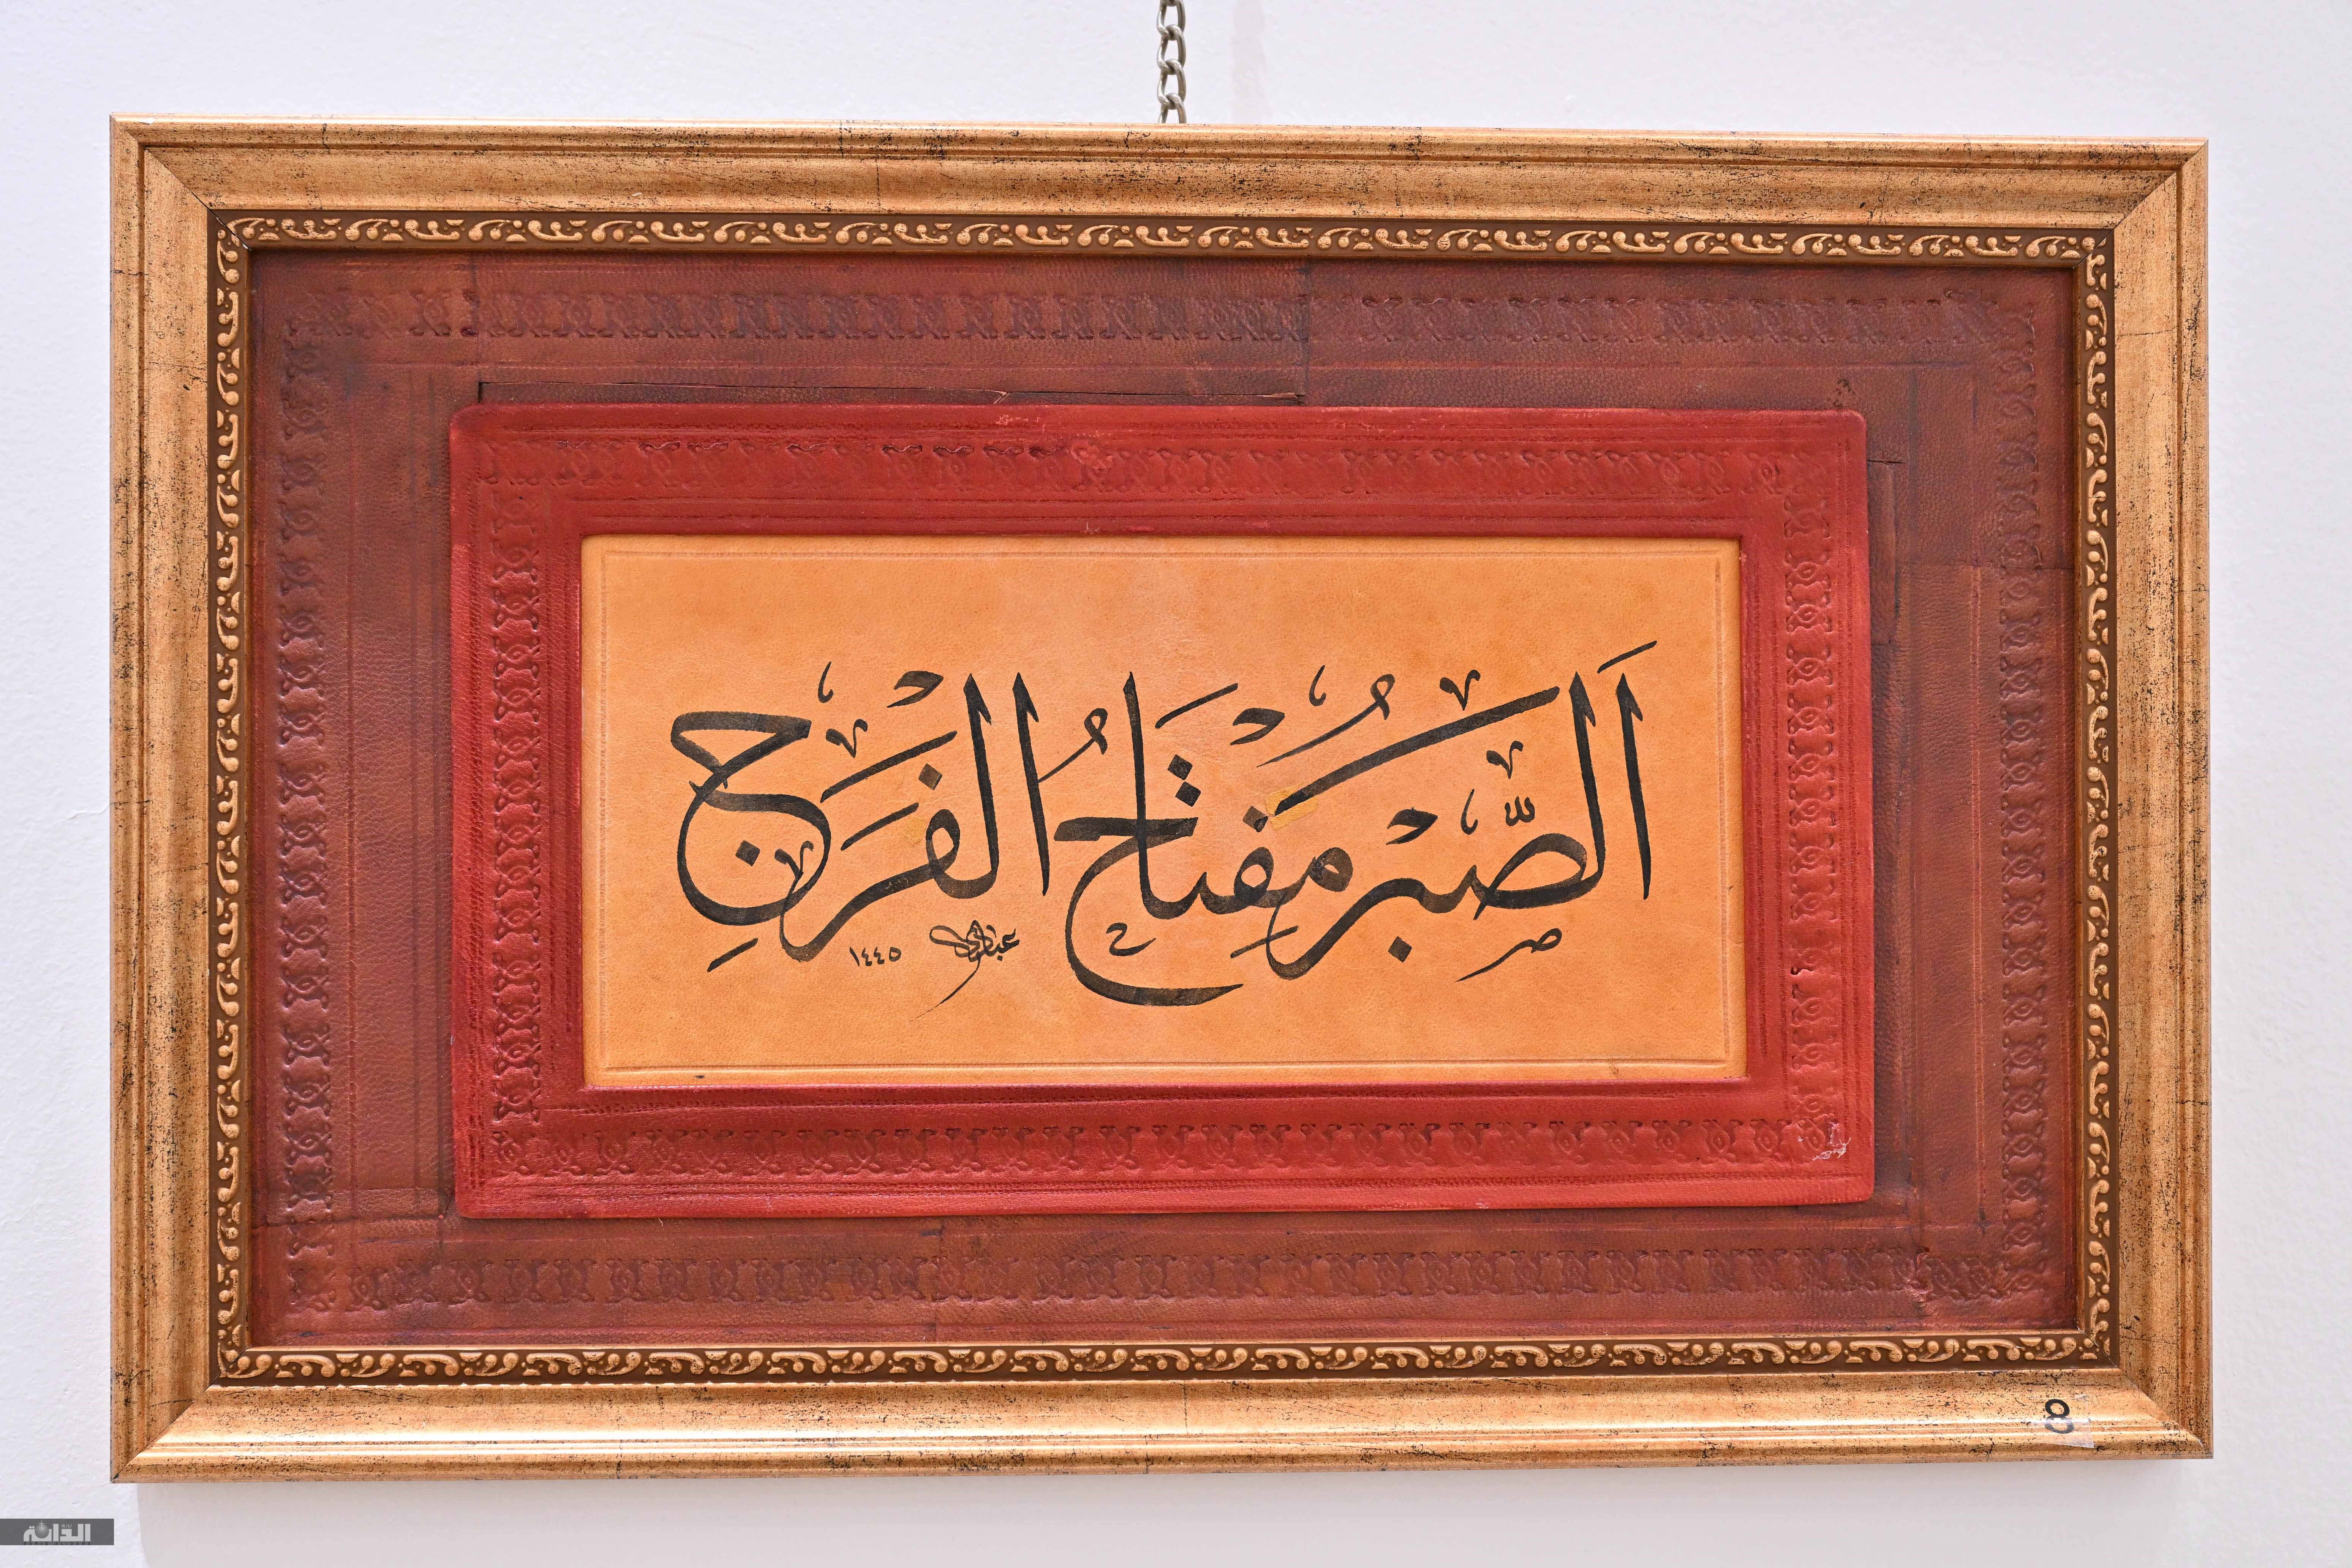 اَلصَّبْرُ مِفْتَاحُ الْفَرَجِ
١٤٤٥
8
الدانة